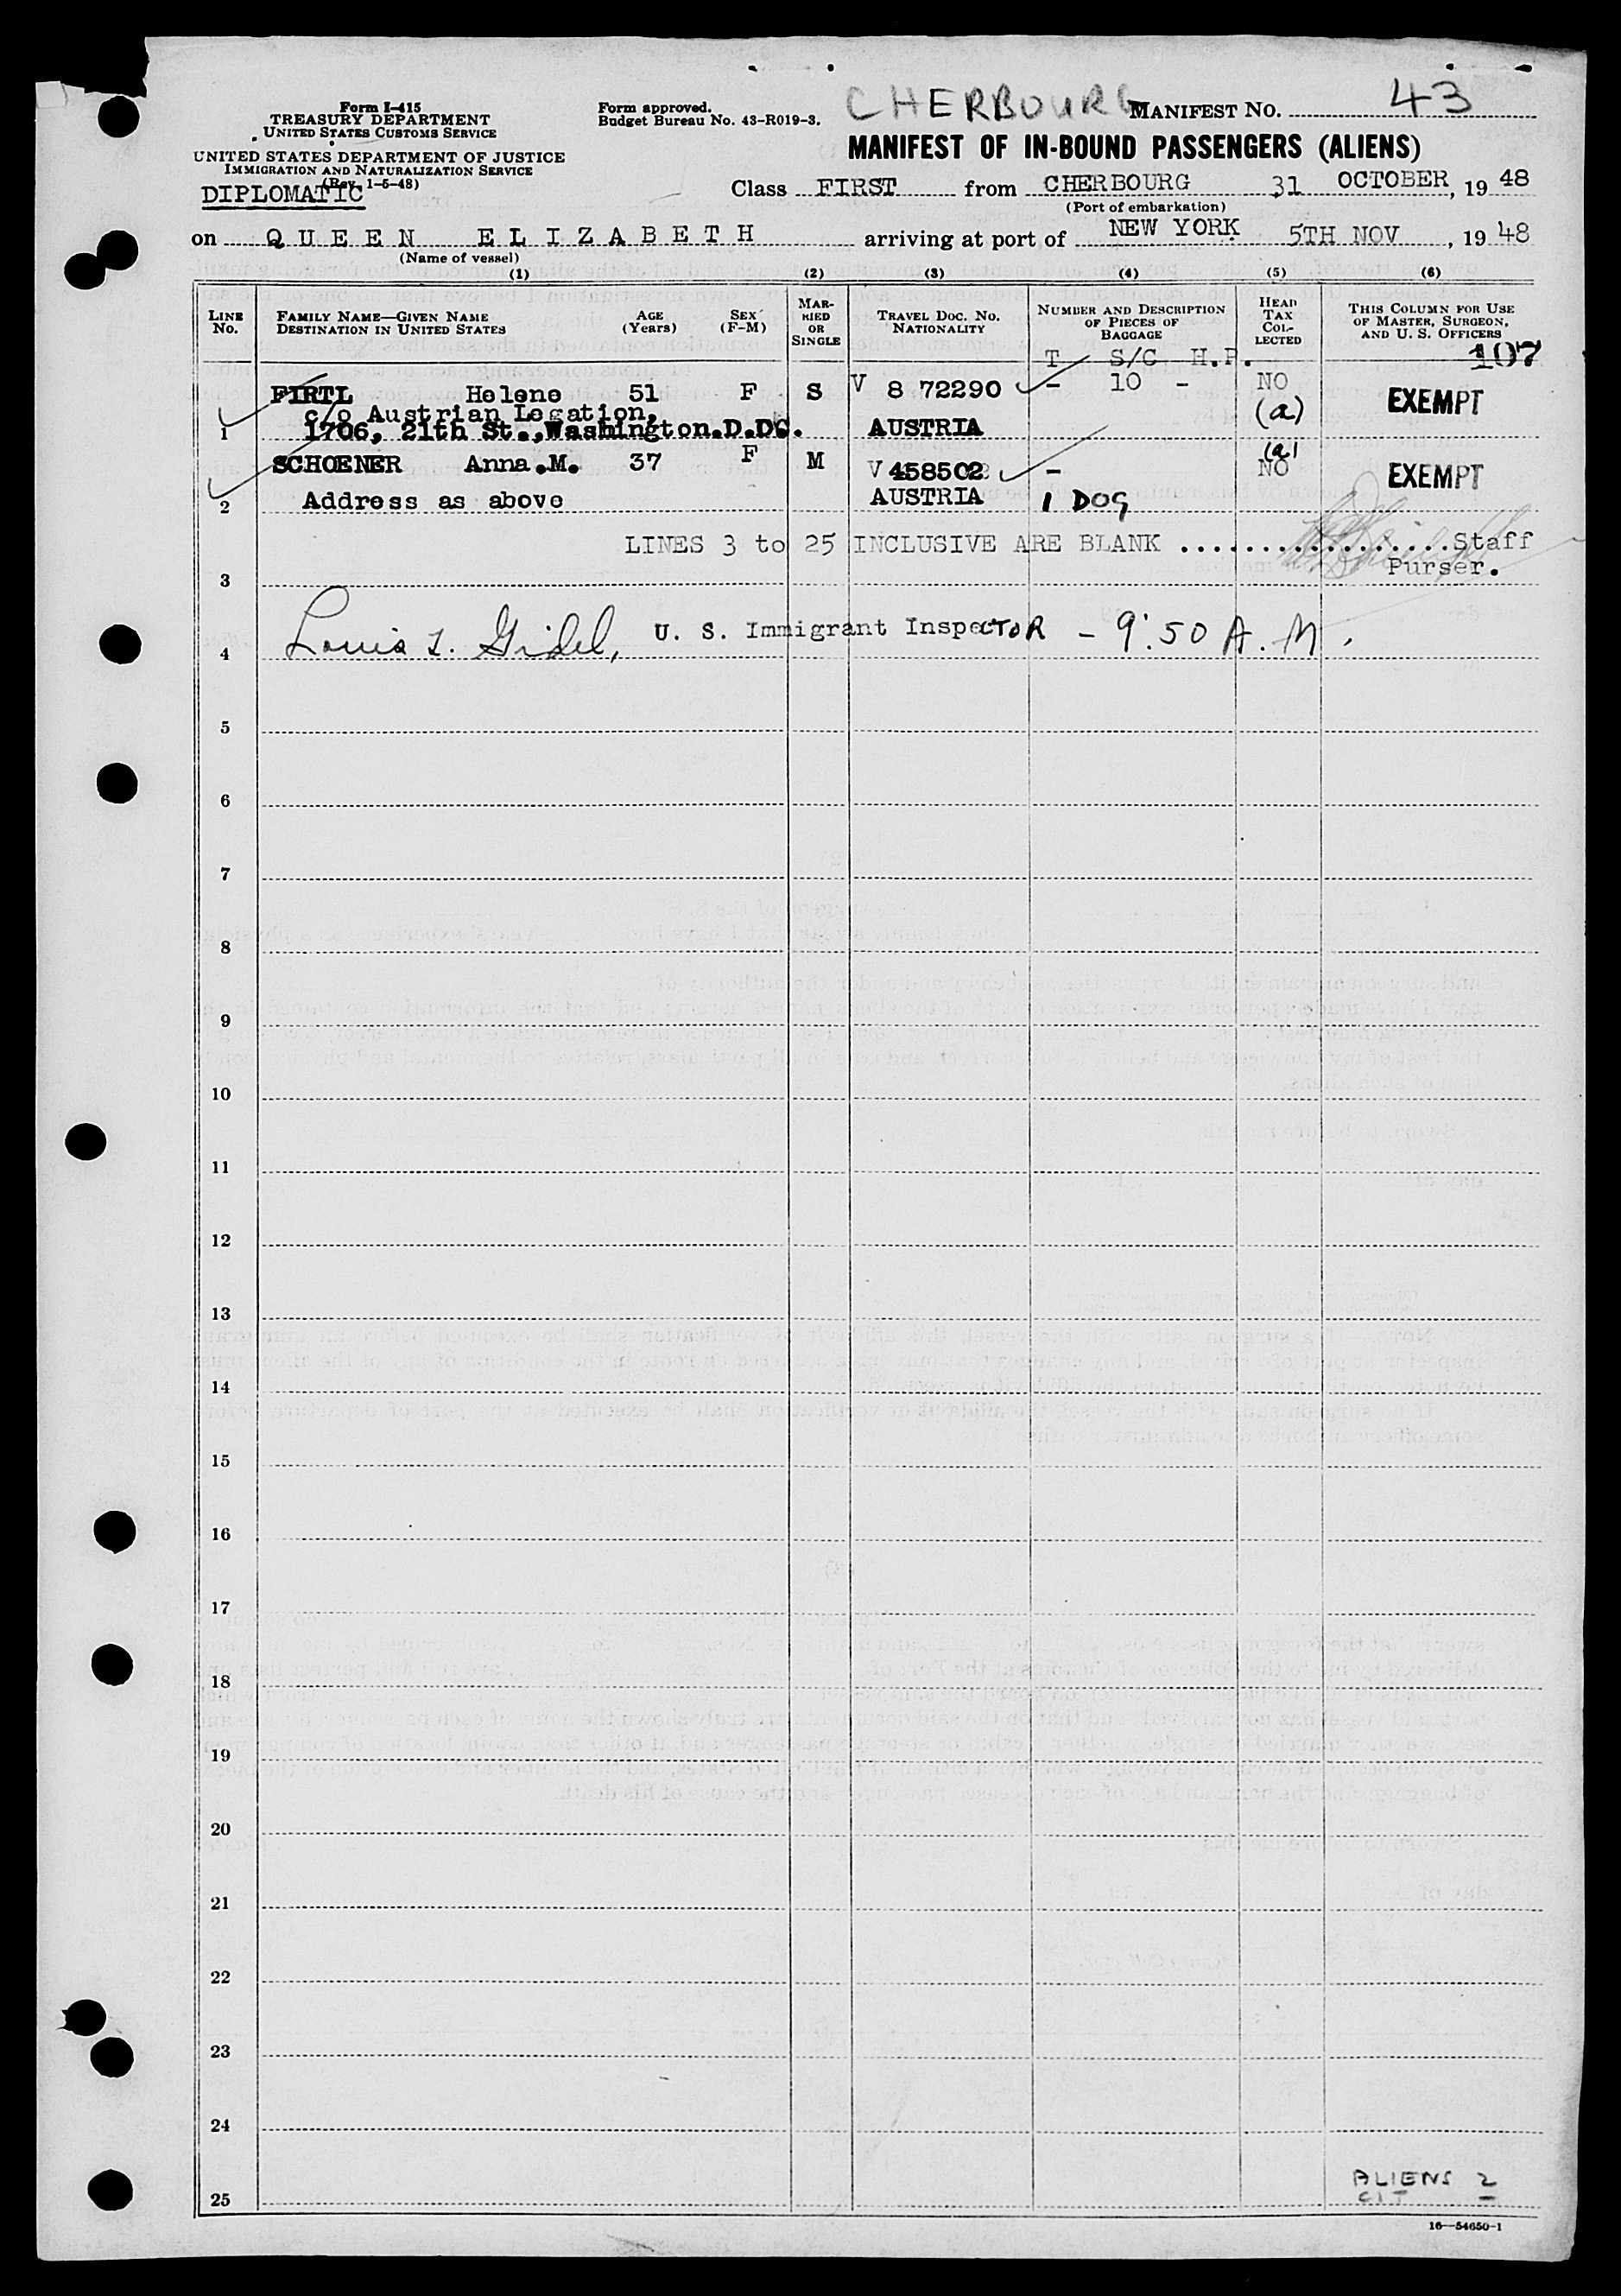 Form I-415
TREASURY DEPARTMENT
UNITED STATES CUSTOMS SERVICE
UNITED STATES DEPARTMENT OF JUSTICE
IMMIGRATION AND NATURALIZATION SERVICE
(Rev. 1-5-48)
DIPLOMATIC
Form approved.
Budget Bureau No. 43-R019-3.
CHERBOURG MANIFEST NO. 43
MANIFEST OF IN-BOUND PASSENGERS (ALIENS)
Class FIRST from CHERBOURG 31 OCTOBER, 19 48
(Port of embarkation)
on QUEEN ELIZABETH arriving at port of NEW YORK 5TH NOV, 19 48
(Name of vessel)
(1) (2) (3) (4) (5) (6)
LINE NO. FAMILY NAME—GIVEN NAME DESTINATION IN UNITED STATES AGE (Years) SEX (F-M) MARRIED OR SINGLE TRAVEL DOC. NO. NATIONALITY NUMBER AND DESCRIPTION OF PIECES OF BAGGAGE HEAD TAX COLLECTED THIS COLUMN FOR USE OF MASTER, SURGEON, AND U. S. OFFICERS
T S/C H.P. 107
FIRTL Helene 51 F S V 8 72290 - 10 - NO EXEMPT
c/o Austrian Legation, (a)
1 1706, 21th St., Washington.D.DC. AUSTRIA
SCHOENER Anna.M. 37 F M V 458502 - (a) NO EXEMPT
2 Address as above AUSTRIA 1 DOG
LINES 3 to 25 INCLUSIVE ARE BLANK .................Staff
3 Purser.
4 Louis I. Gidel, U. S. Immigrant Inspector - 9:50 A.M.
5
6
7
8
9
10
11
12
13
14
15
16
17
18
19
20
21
22
23
24
ALIENS 2
25 CIT —
16—54650-1